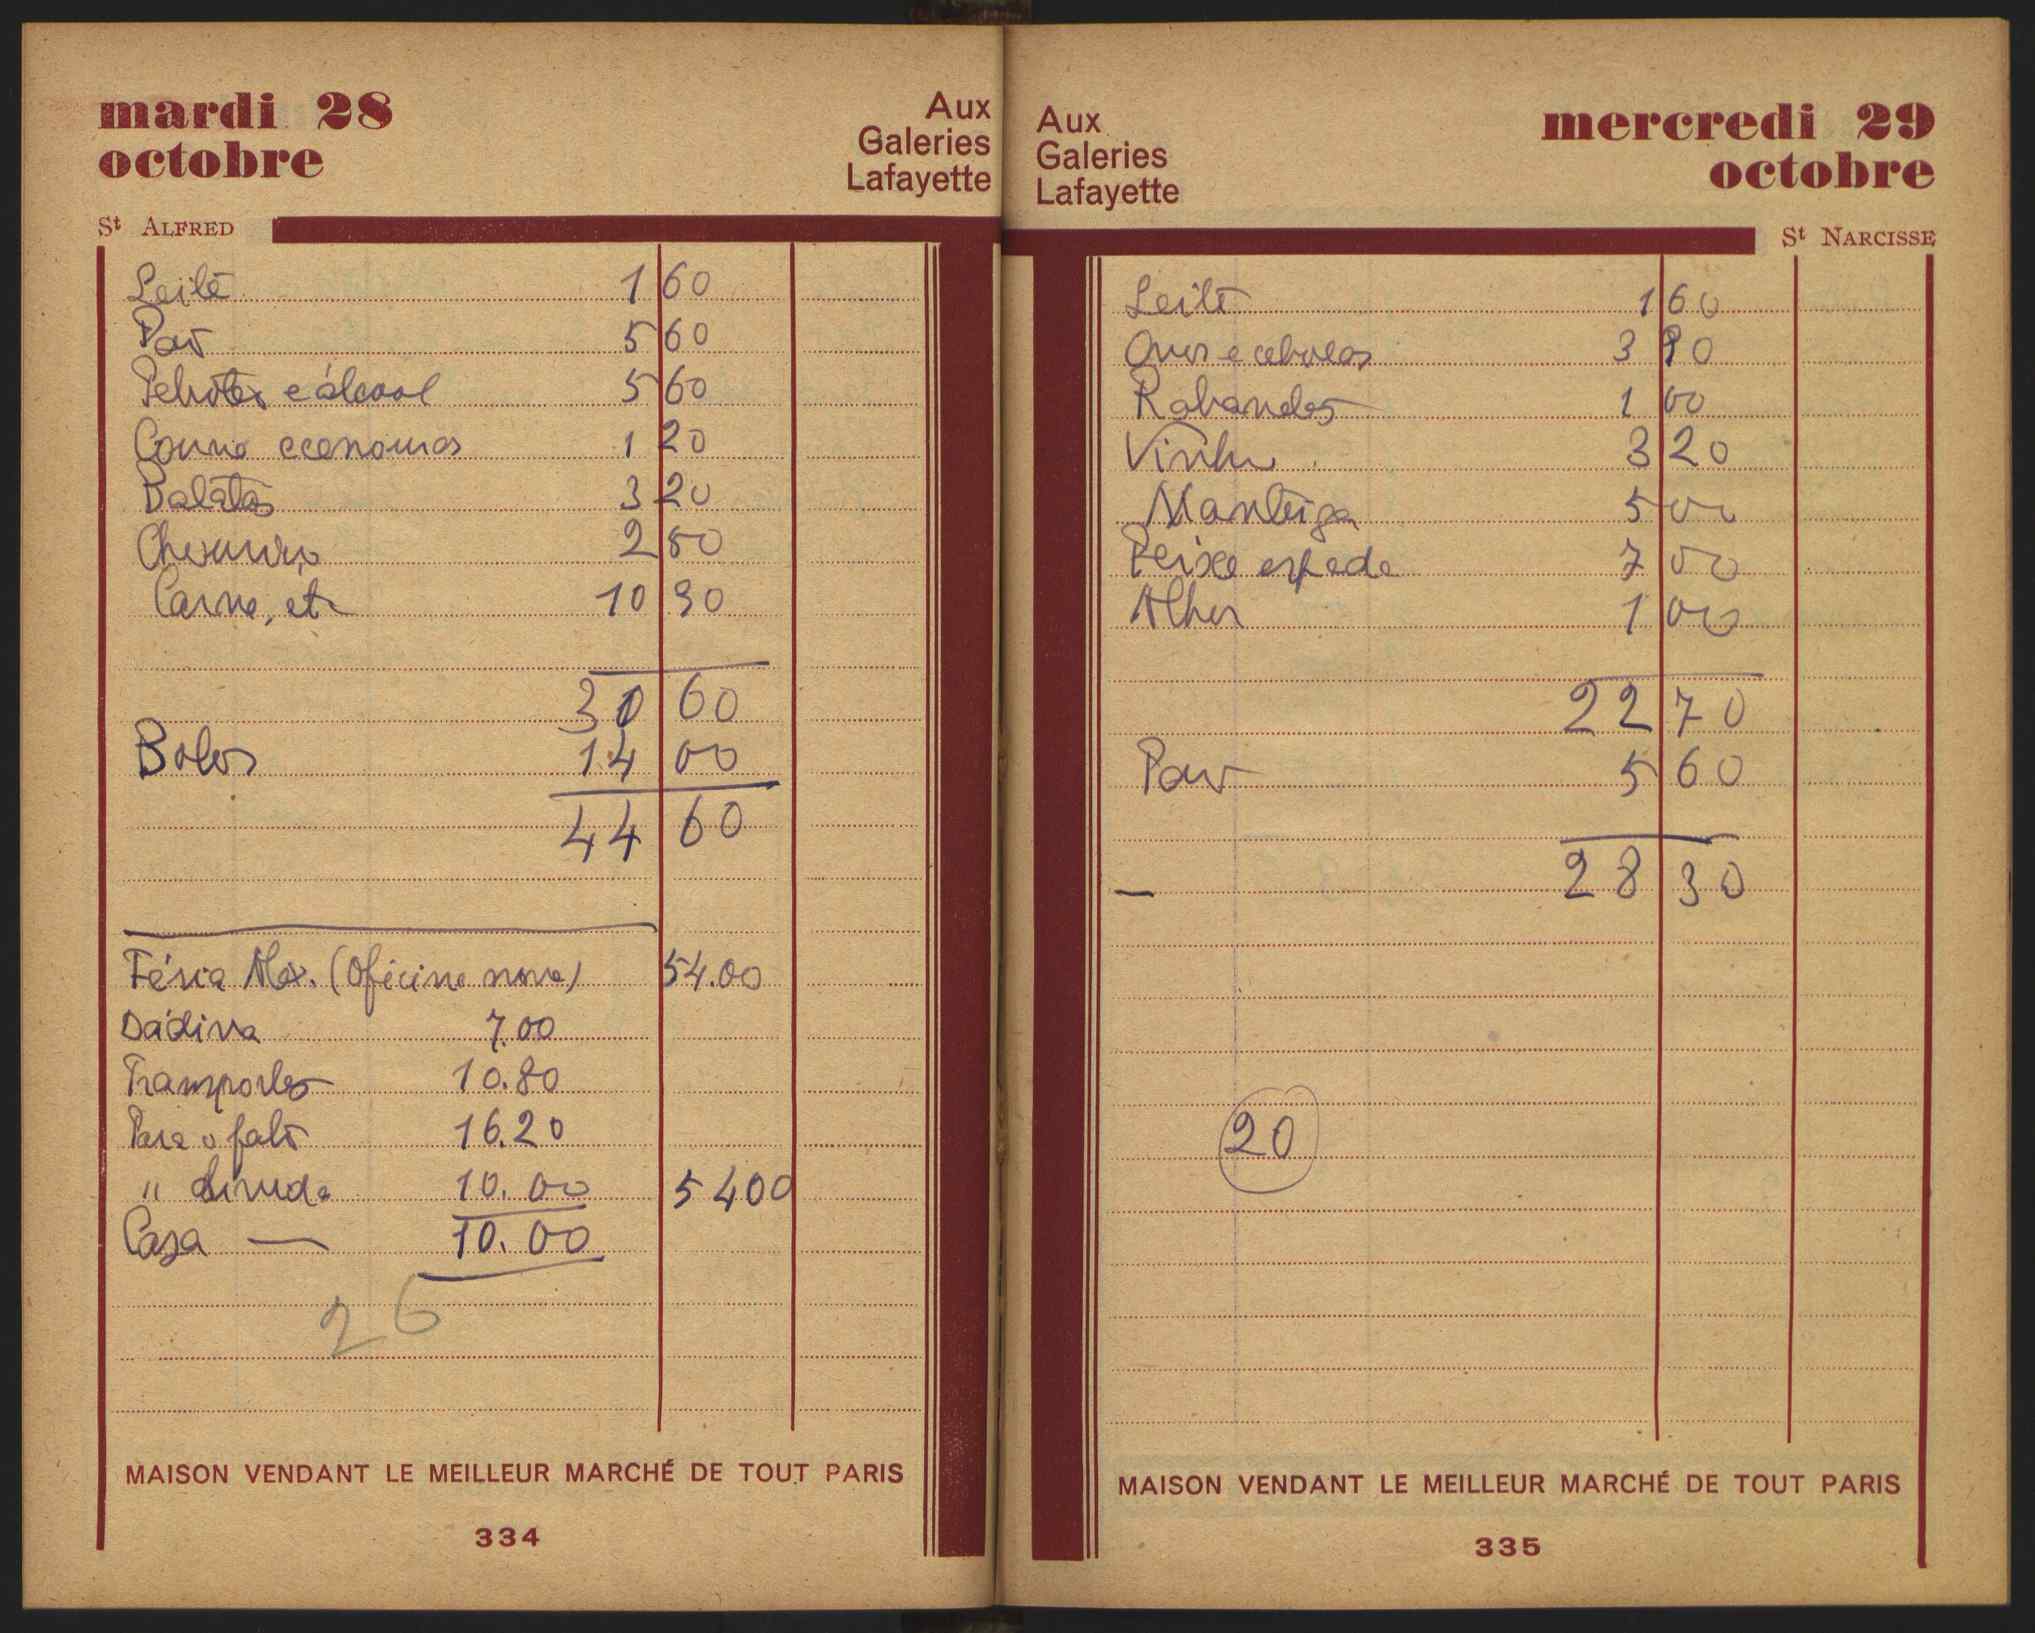 mardi 28
octobre
Aux
Galeries
Lafayette
St ALFRED
Leite 1 60
Pão 5 60
e álcool 5 60
1 20
Batatas 3 20
2 80
Carne, etc 10 30
30 60
Bolos 14 00
44 60
Féria Alex. (Oficina nova) 54.00
Dádiva 7.00
Transportes 10.80
Para o fato 16.20
" 10.00 5400
Casa — 10.00
26
MAISON VENDANT LE MEILLEUR MARCHÉ DE TOUT PARIS
334
Aux
Galeries
Lafayette
mercredi 29
octobre
St NARCISSE
Leite 1 60
Ovos e cebolas 3 90
Rabanetes 1 00
Vinho 3 20
Manteiga 5 00
Peixe espada 7 00
Alhos 1 00
22 70
Pão 5 60
— 28 30
20
MAISON VENDANT LE MEILLEUR MARCHÉ DE TOUT PARIS
335